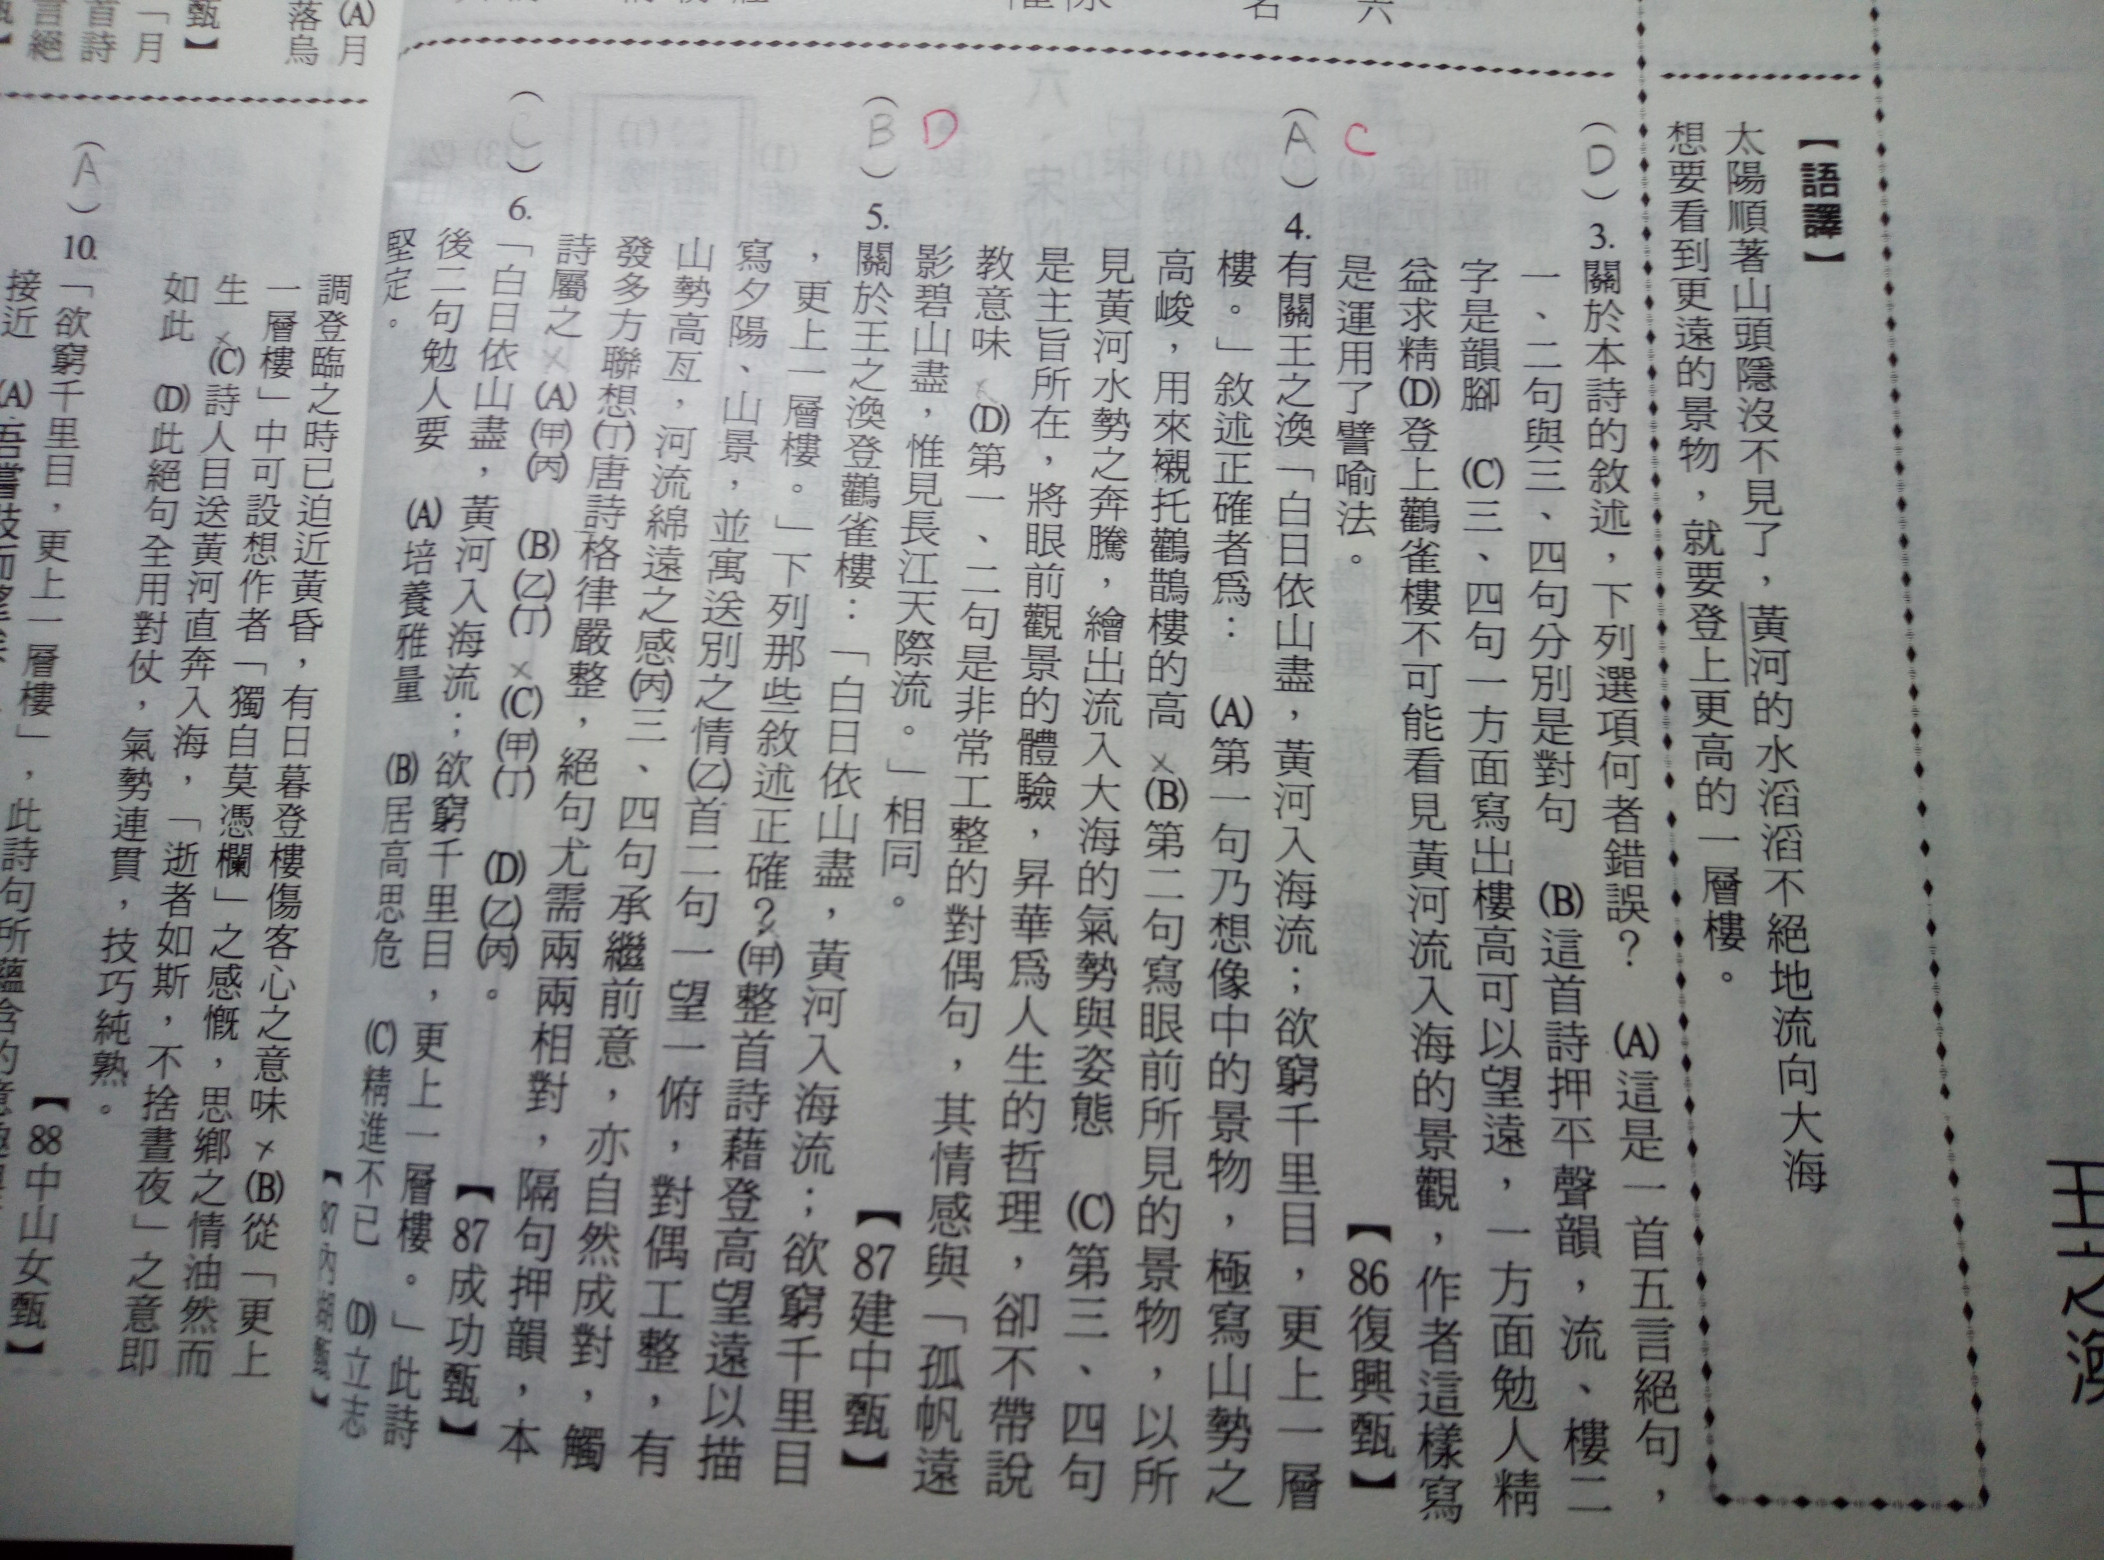 王之渙
【語譯】
太陽順著山頭隱沒不見了，黃河的水滔滔不絕地流向大海
想要看到更遠的景物，就要登上更高的一層樓。
(D) 3. 關於本詩的敘述，下列選項何者錯誤？ (A)這是一首五言絕句，
一、二句與三、四句分別是對句 (B)這首詩押平聲韻，流、樓二
字是韻腳 (C)三、四句一方面寫出樓高可以望遠，一方面勉人精
益求精(D)登上鸛雀樓不可能看見黃河流入海的景觀，作者這樣寫
是運用了譬喻法。 【86復興甄】
C
(A) 4. 有關王之渙「白日依山盡，黃河入海流；欲窮千里目，更上一層
樓。」敘述正確者爲： (A)第一句乃想像中的景物，極寫山勢之
高峻，用來襯托鸛鵲樓的高 (B)第二句寫眼前所見的景物，以所
見黃河水勢之奔騰，繪出流入大海的氣勢與姿態 (C)第三、四句
是主旨所在，將眼前觀景的體驗，昇華爲人生的哲理，卻不帶說
教意味 (D)第一、二句是非常工整的對偶句，其情感與「孤帆遠
影碧山盡，惟見長江天際流。」相同。 【87建中甄】
D
(B) 5. 關於王之渙登鸛雀樓：「白日依山盡，黃河入海流；欲窮千里目
，更上一層樓。」下列那些敘述正確？(甲)整首詩藉登高望遠以描
寫夕陽、山景，並寓送別之情(乙)首二句一望一俯，對偶工整，有
山勢高亙，河流綿遠之感(丙)三、四句承繼前意，亦自然成對，觸
發多方聯想(丁)唐詩格律嚴整，絕句尤需兩兩相對，隔句押韻，本
詩屬之 (A)(甲)(丙) (B)(乙)(丁) (C)(甲)(丁) (D)(乙)(丙)。 【87成功甄】
(C) 6. 「白日依山盡，黃河入海流；欲窮千里目，更上一層樓。」此詩
後二句勉人要 (A)培養雅量 (B)居高思危 (C)精進不已 (D)立志
堅定。 【87內湖甄】
(A)月
落烏
甄】
「月
首詩
言絕
調登臨之時已迫近黃昏，有日暮登樓傷客心之意味 (B)從「更上
一層樓」中可設想作者「獨自莫憑欄」之感慨，思鄉之情油然而
生 (C)詩人目送黃河直奔入海，「逝者如斯，不捨晝夜」之意即
如此 (D)此絕句全用對仗，氣勢連貫，技巧純熟。
【88中山女甄】
(A) 10. 「欲窮千里目，更上一層樓」，此詩句所蘊含的意
接近 (A)吾嘗跂而望矣